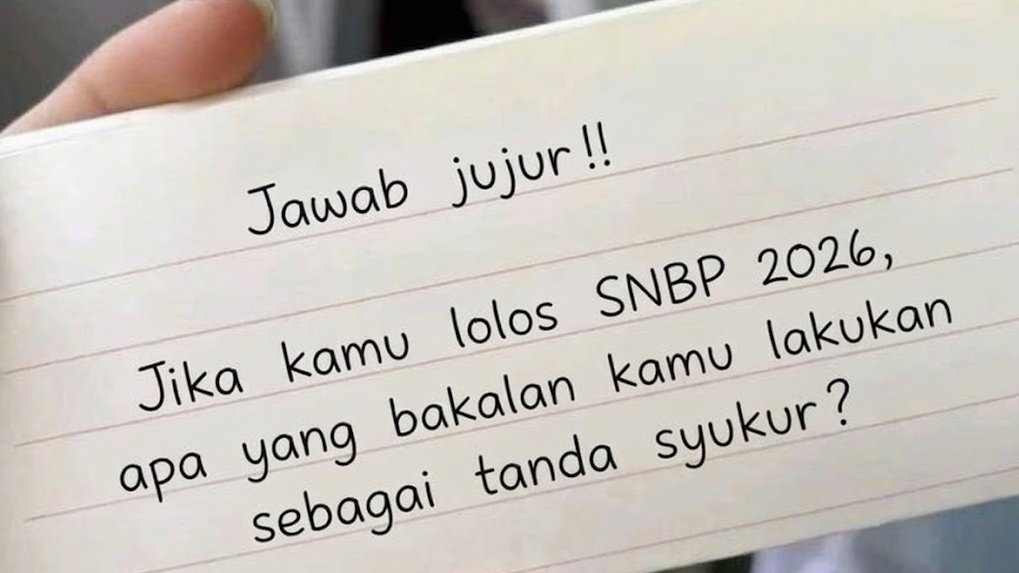 Jawab jujur!!
Jika kamu lolos SNBP 2026,
apa yang bakalan kamu lakukan
sebagai tanda syukur?